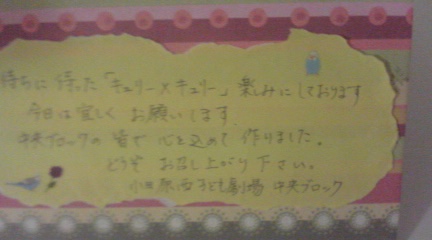 待ちに待った「キュリー×キュリー」楽しみにしております
今日は宜しくお願いします。
中央ブロックの皆で心を込めて作りました。
どうぞお召し上がり下さい。
小田原西子ども劇場 中央ブロック